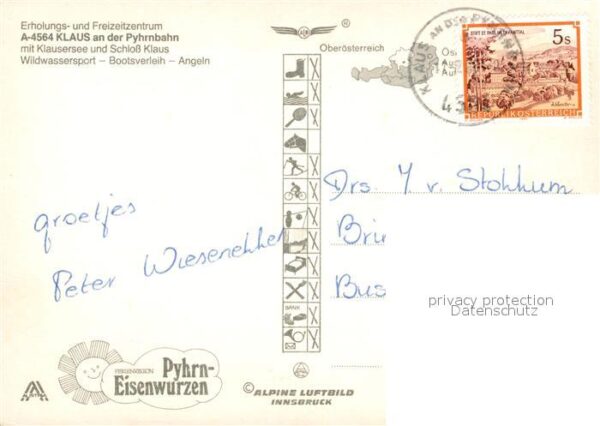 Erholungs- und Freizeitzentrum
A-4564 KLAUS an der Pyhrnbahn
mit Klausersee und Schloß Klaus
Wildwassersport – Bootsverleih – Angeln
®
Oberösterreich
KLAUS AN DER PYHRNBAHN
STIFT ST. PAUL IM LAVANTTAL
5s
REPUBLIK ÖSTERREICH
groetjes
Peter Wiesenekker
Drs. Y. v. Stokkum
Brie
Bus
BANK
privacy protection
Datenschutz
FERIENREGION
Pyhrn-
Eisenwurzen
AUSTRIA
© ALPINE LUFTBILD
INNSBRUCK